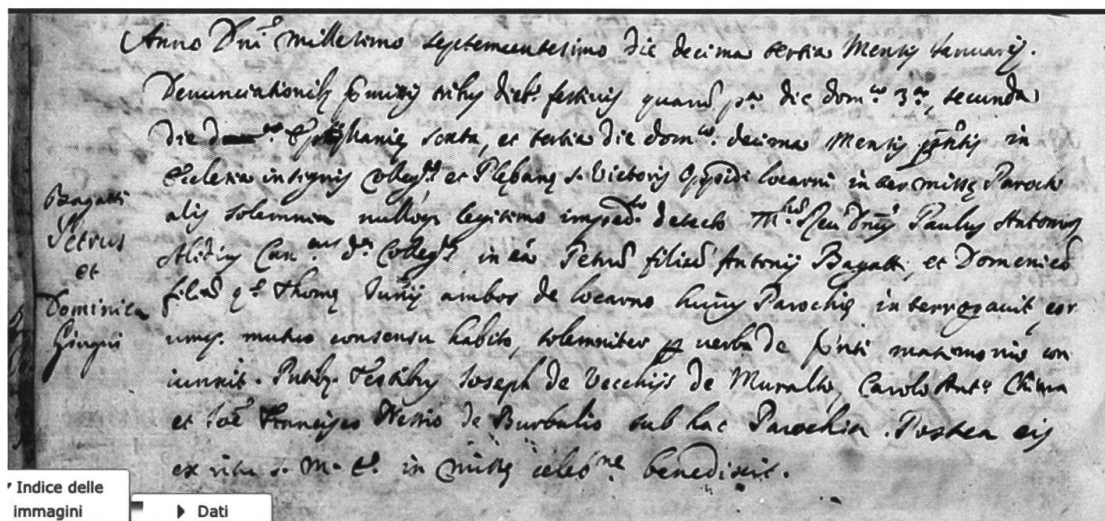 Anno Dnī millesimo septemcentesimo die decima tertia Mensis Januarij.
Denunciationib. tribus dieb. festivis quarū pa. die domca. 3a, secunda
die Epiphaniæ sexta, et tertia die domca. decima Mensis pntis in
Ecclesia insignis Collegta et Plebanæ S. Victoris Oppidi Locarni inter missæ Paroch
alis solemnia nulloq. legitimo impedto. detecto Mtus Reu. Dnus Paulus Antonius
Can.cus dæ Collegtæ in ea Petrū filiū Antonij Bagatti, et Domenicā
filiā q. Thomæ Junij ambos de Locarno huius Parochiæ interrogavit, eor
umq. mutuo consensu habito, solemniter p verba de pnti matimonio con
iunxit. Pntib. Testibus Joseph de Vecchijs de Muralto, Carolo Anto.
et Joe Francisco de Burbalio sub hac Parochia. Postea eis
ex ritu S. M. E. in missæ celebne benedixit.
Bagatti
Petrus
et
Dominica
Giugni
Indice delle
immagini
Dati